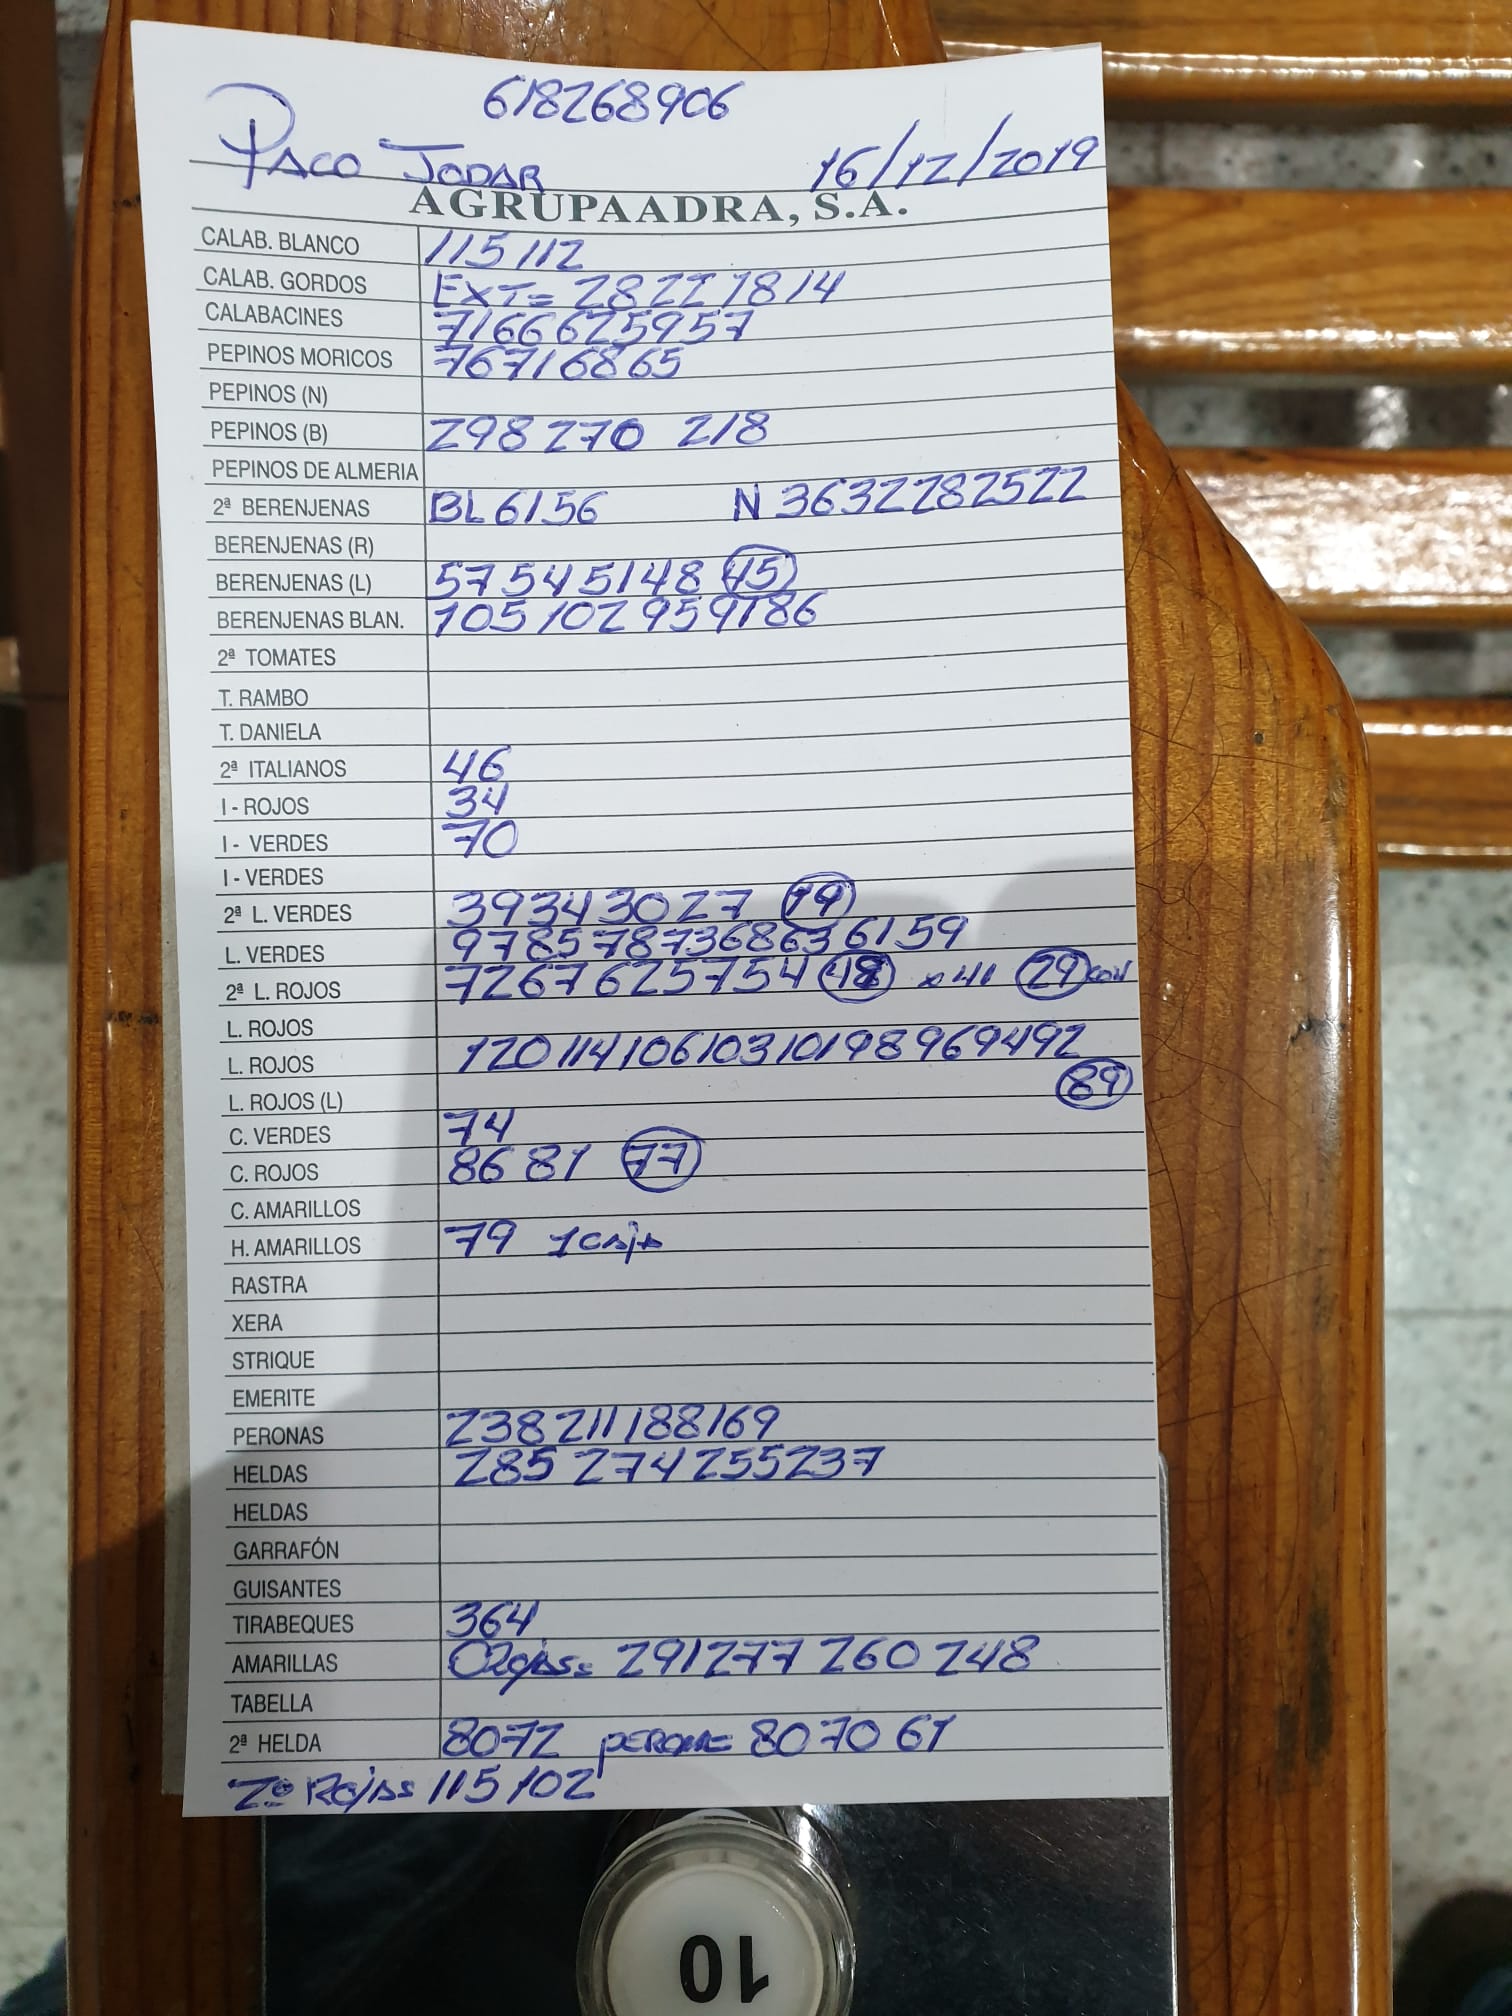 618268906
PACO JODAR 16/12/2019
AGRUPAADRA, S.A.
CALAB. BLANCO 115 112
CALAB. GORDOS EXT= 28 22 18 14
CALABACINES 71 66 62 59 57
PEPINOS MORICOS 76 71 68 65
PEPINOS (N)
PEPINOS (B) 298 270 218
PEPINOS DE ALMERIA
2ª BERENJENAS BL 61 56 N 36 32 28 25 22
BERENJENAS (R)
BERENJENAS (L) 57 54 51 48 45
BERENJENAS BLAN. 105 102 95 91 86
2ª TOMATES
T. RAMBO
T. DANIELA
2ª ITALIANOS 46
I - ROJOS 34
I - VERDES 70
I - VERDES
2ª L. VERDES 39 34 30 27 19
L. VERDES 97 85 78 73 68 63 61 59
2ª L. ROJOS 72 67 62 57 54 48 41 29
L. ROJOS
L. ROJOS 120 114 106 103 101 98 96 94 92
L. ROJOS (L) 89
C. VERDES 74
C. ROJOS 86 81 77
C. AMARILLOS
H. AMARILLOS 79 1 caja
RASTRA
XERA
STRIQUE
EMERITE
PERONAS 238 211 188 169
HELDAS 285 274 255 237
HELDAS
GARRAFÓN
GUISANTES
TIRABEQUES 364
AMARILLAS 291 277 260 248
TABELLA
2ª HELDA 80 72 80 70 61
2ª Rojas 115 102
10